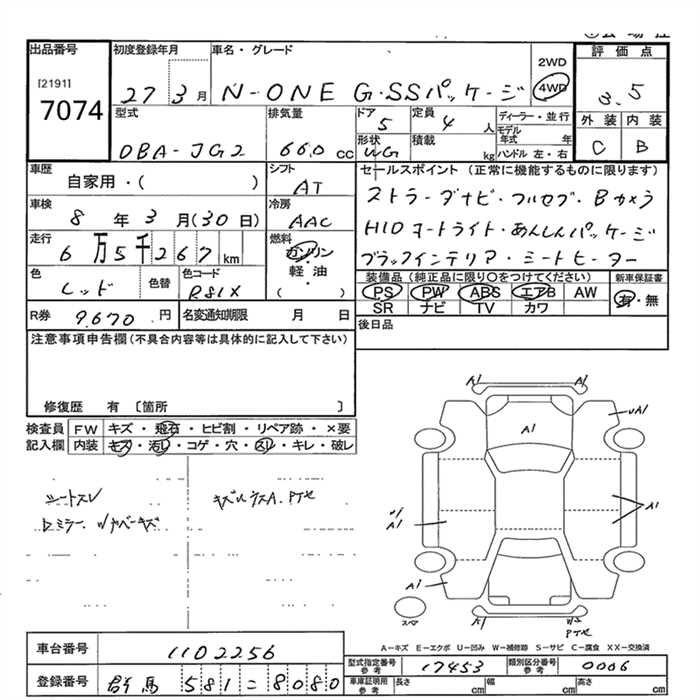 出品番号 初度登録年月 車名・グレード 2WD 評価点
[2191] 7074 27 3月 N-ONE G・SSパッケージ 4WD 3.5
型式 排気量 ドア 定員 ディーラー・並行 外装 内装
DBA-JG2 660 cc 5 4 人 モデル年式 年 C B
形状 WG 積載 kg ハンドル 左・右
車歴 シフト セールスポイント (正常に機能するものに限ります)
自家用・( ) AT ストラーダナビ・フルセグ・Bカメラ
車検 冷房 HIDヘッドライト・あんしんパッケージ
8年3月(30日) AAC ブラックインテリア・シートヒーター
走行 燃料
6万5千267km ガソリン・軽油・( )
色 色替 色コード 装備品(純正品に限り○をつけてください) 新車保証書
レッド R81X PS PW ABS エアB AW 有・無
SR ナビ TV カワ
R券 9,670 円 名変通知期限 月 日 後日品
注意事項申告欄(不具合内容等は具体的に記入して下さい)
修復歴 有 〔箇所 〕
検査員 FW キズ・飛石・ヒビ割・リペア跡・×要
記入欄 内装 キズ・汚レ・コゲ・穴・スレ・キレ・破レ
シートスレ
A1 A1
A1 A1
A1 A1
A1
スペア
A-キズ E-エクボ U-凹み W-補修跡 S-サビ C-腐食 XX-交換済
車台番号 1102256 型式指定番号 参考 17453 類別区分番号 参考 0006
登録番号 群馬 581 = 8080 車庫証明用 参考 長さ cm 幅 cm 高さ cm